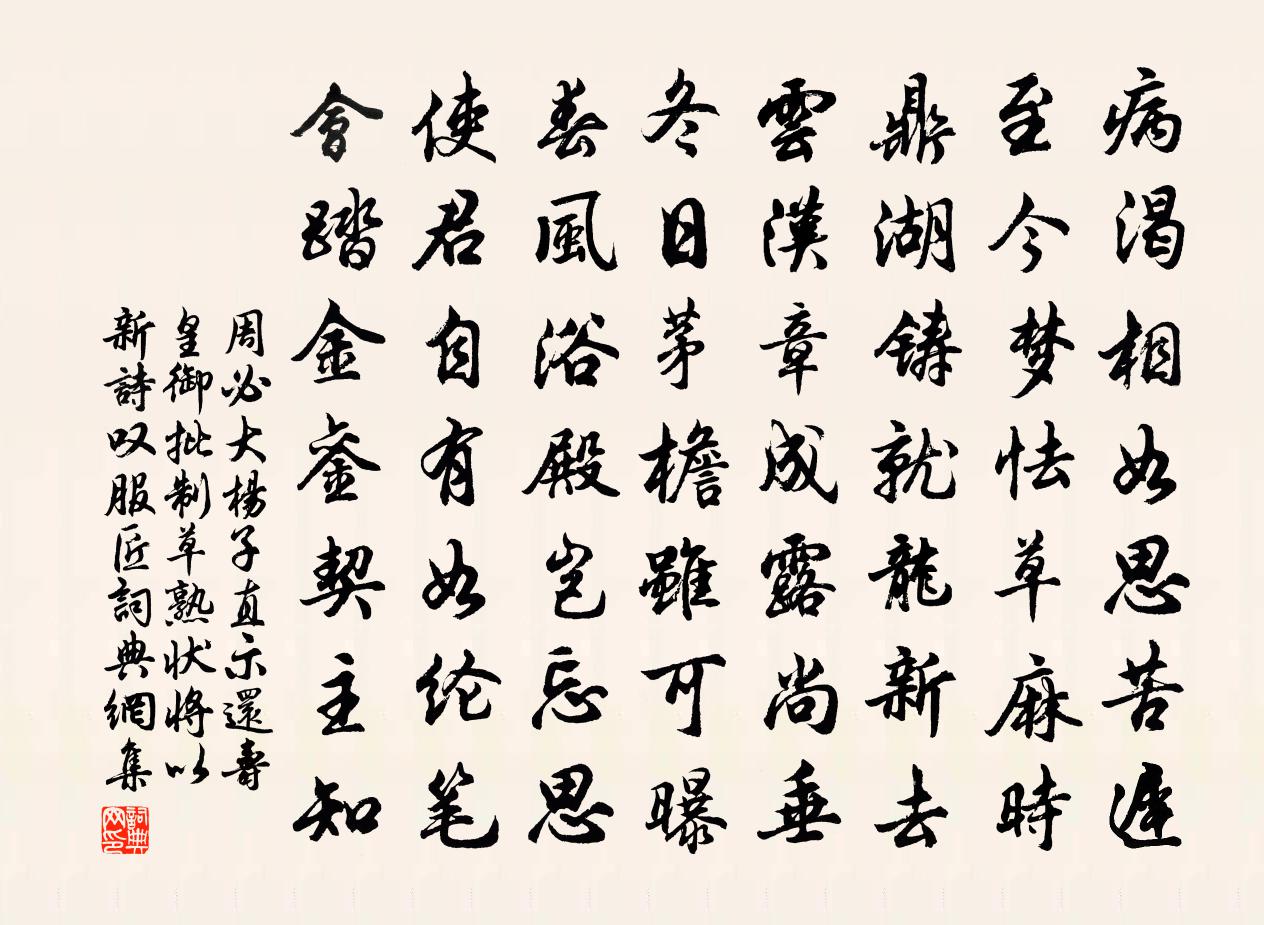 病渴相如思苦遲
至今梦怯草麻時
鼎湖铸就龍新去
雲漢章成露尚垂
冬日茅檐雖可曝
春風浴殿岂忘思
使君自有如纶笔
會踏金銮契主知
周必大楊子直示還壽
皇御批制草熟状將以
新詩叹服匠詞典網集
詞典网印